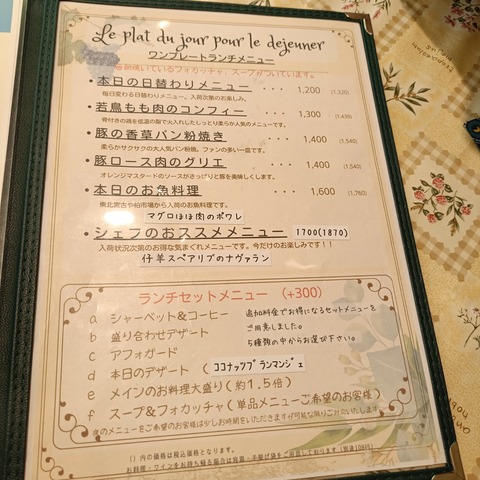 Le plat du jour pour le dejeuner
ワンプレートランチメニュー
毎朝焼いているフォカッチャ、スープがついています。
・本日の日替わりメニュー ・・・ 1,200 (1,320)
毎日変わる日替わりメニュー。入荷次第のお楽しみ。
・若鳥もも肉のコンフィー ・・・ 1,300 (1,430)
骨付きの鶏を低温の脂で火入れしたしっとり柔らか人気のメニューです。
・豚の香草パン粉焼き ・・・ 1,400 (1,540)
柔らかサクサクの大人気パン粉焼。ファンの多い一皿です。
・豚ロース肉のグリエ ・・・ 1,400 (1,540)
オレンジマスタードのソースがさっぱりと豚を美味しくします。
・本日のお魚料理 ・・・ 1,600 (1,760)
東北宮古や柏市場から入荷のお魚料理です。
マグロほほ肉のポワレ
・シェフのおススメメニュー 1700(1870)
入荷状況次第のお得な気まぐれメニューです。今だけのお楽しみです！！
仔羊スペアリブのナヴァラン
ランチセットメニュー (+300)
a シャーベット&コーヒー
b 盛り合わせデザート
c アフォガード
d 本日のデザート (ココナッツブランマンジェ
e メインのお料理大盛り(約1.5倍)
f スープ&フォカッチャ(単品メニューご希望のお客様)
追加料金でお得になるセットメニューを
ご用意しました。
5種類の中からお選び下さい。
のメニューをご希望のお客様は少しお時間をいただきますが可能な限りご対応いたします
()内の価格は税込価格となります。
お料理・ワインをお持ち帰る場合は容器・手提げ袋をご用意しております